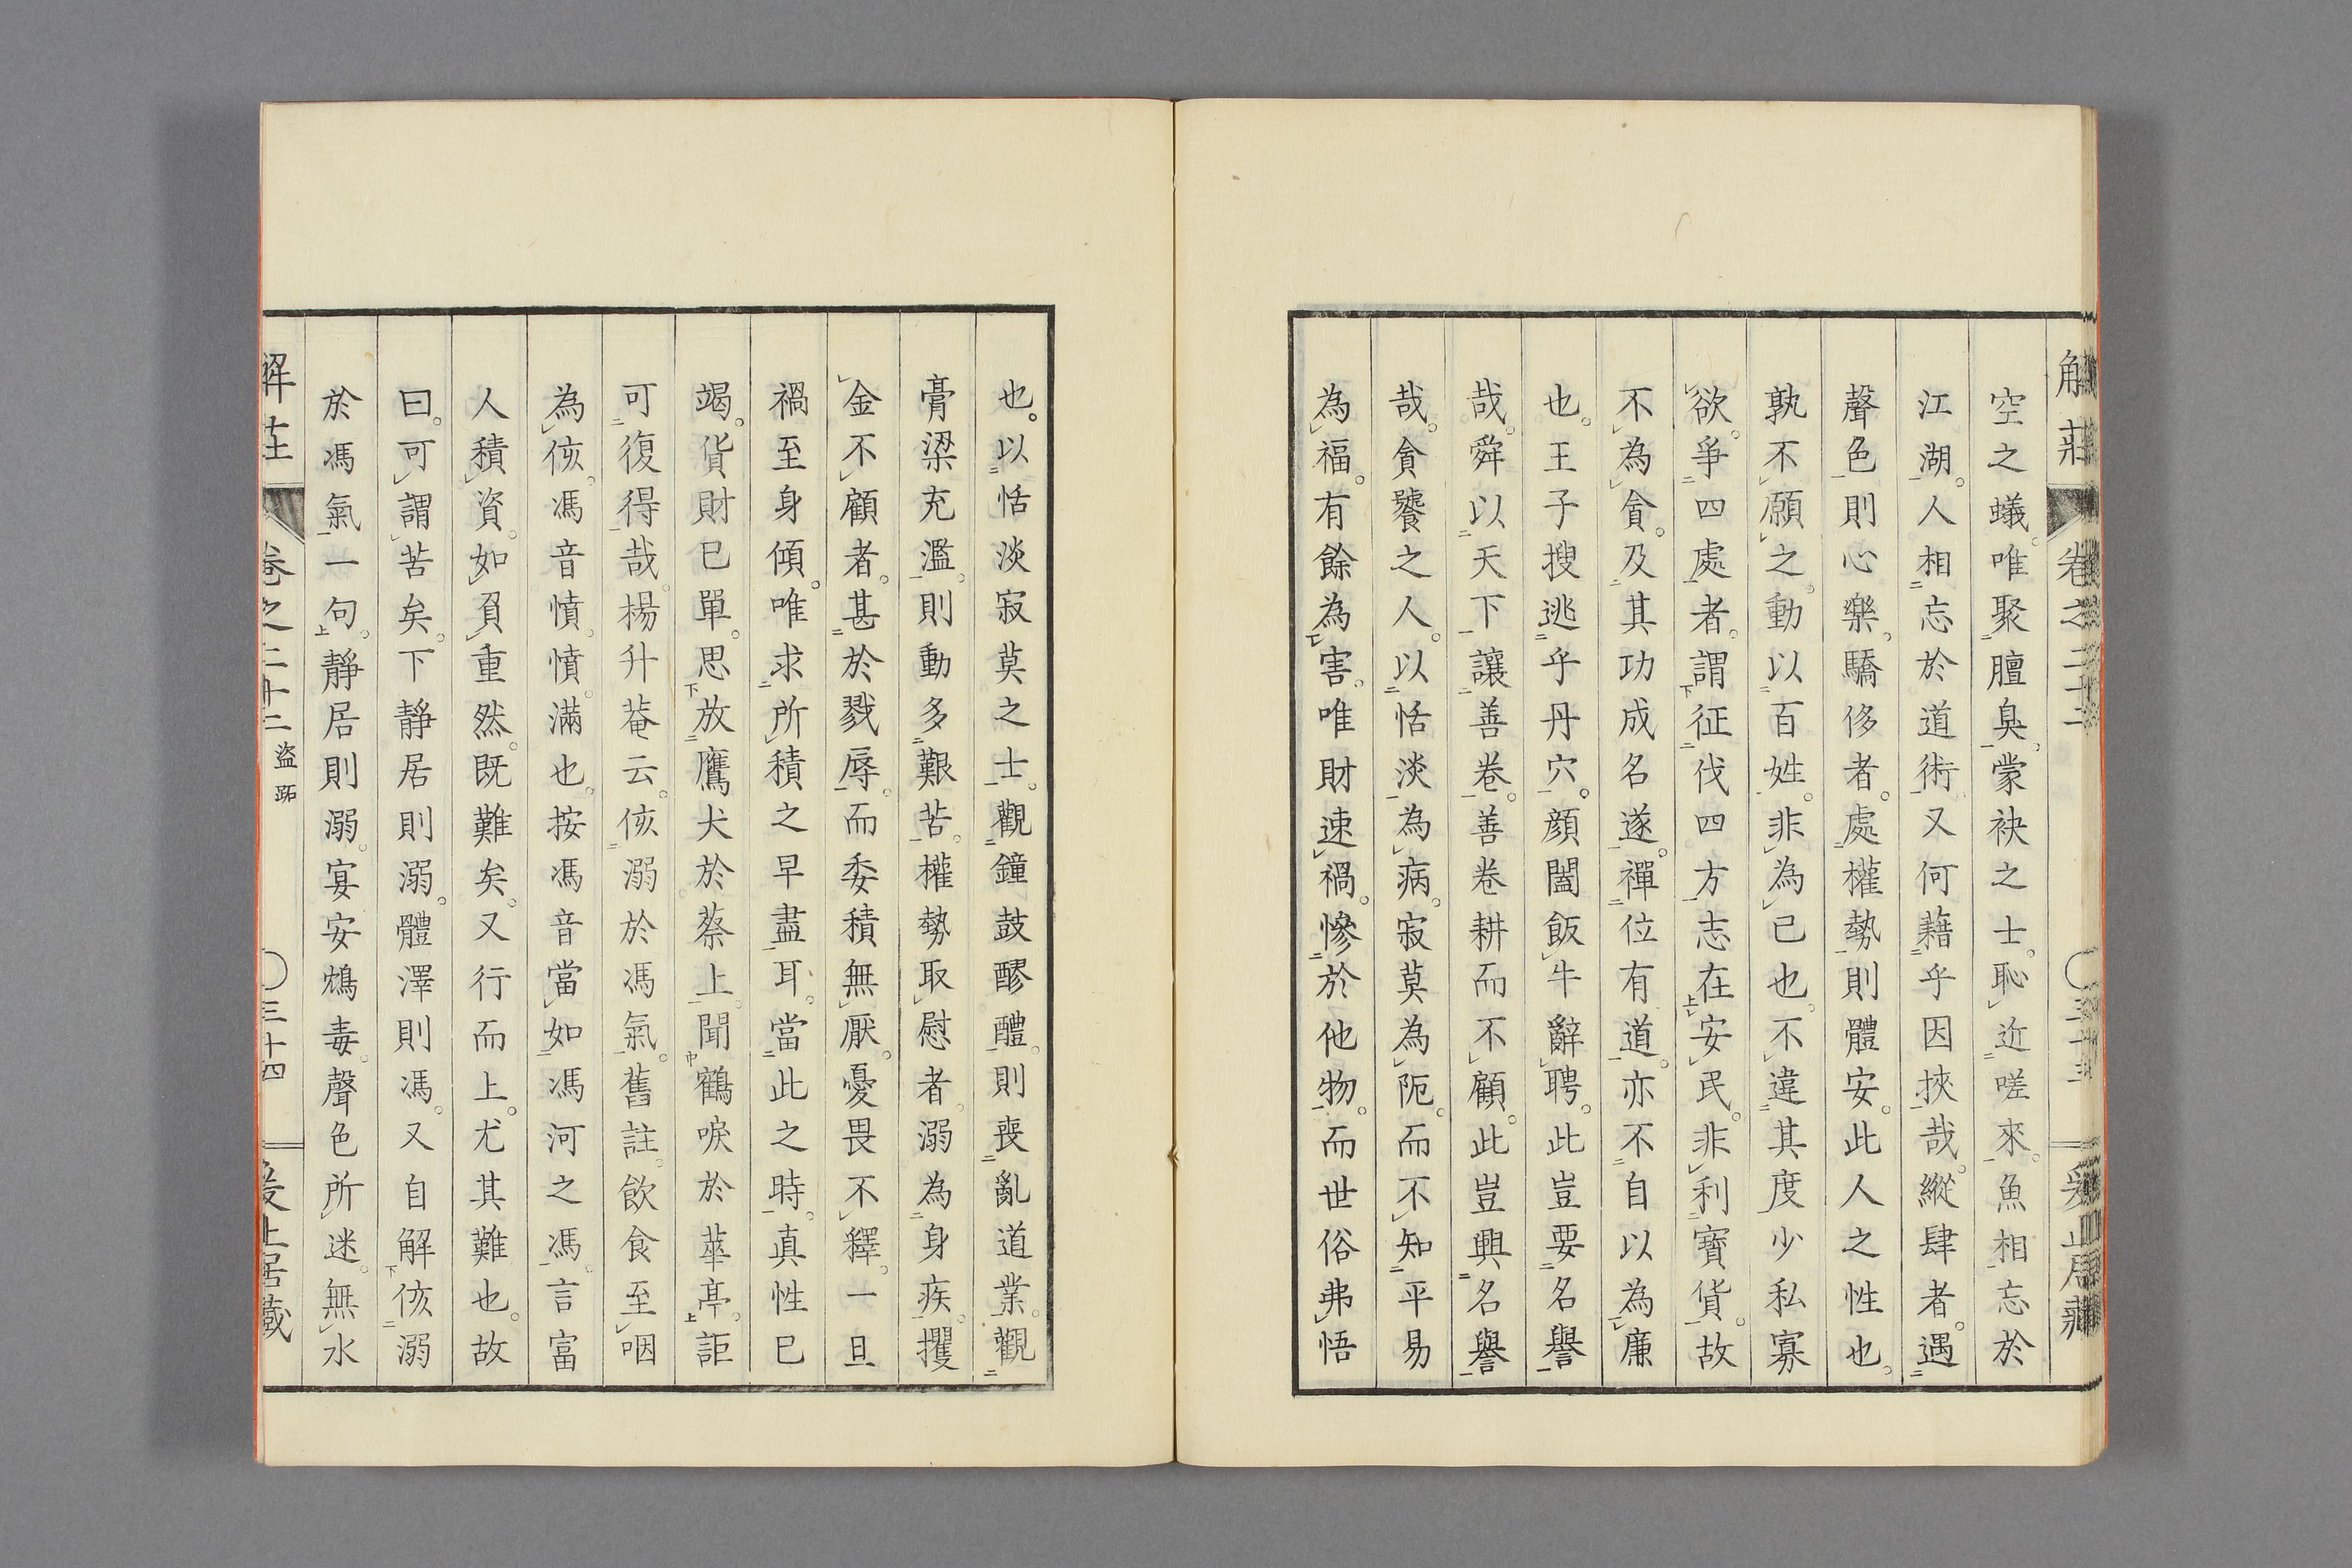 解莊 卷之二十二 〇三十三
空之蟻。唯聚膻臭。蒙袂之士。恥近嗟來。魚相忘於
江湖。人相忘於道術。又何藉乎因挾哉。縱肆者。遇
聲色則心樂。驕侈者。處權勢則體安。此人之性也。
孰不願之。動以百姓。非為己也。不違其度。少私寡
欲。爭四處者。謂征伐四方。志在安民。非利寶貨。故
不為貪。及其功成名遂。禪位有道。亦不自以為廉
也。王子搜逃乎丹穴。顏闔飯牛辭聘。此豈要名譽
哉。舜以天下讓善卷。善卷耕而不顧。此豈興名譽
哉。貪饕之人。以恬淡為病。寂莫為阨。而不知平易
為福。有餘為害。唯財速禍。慘於他物。而世俗弗悟
也。以恬淡寂莫之士。觀鐘鼓醪醴。則喪亂道業。觀
膏梁充濫。則動多艱苦。權勢取慰者。溺為身疾。攫
金不顧者。甚於戮辱。而委積無厭。憂畏不釋。一旦
禍至身傾。唯求所積之早盡耳。當此之時。真性已
竭。貨財已單。思放鷹犬於蔡上。聞鶴唳於華亭。詎
可復得哉。楊升菴云。侅溺於馮氣。舊註。飲食至咽
為侅。馮音憤。憤滿也。按馮音當如馮河之馮。言富
人積資。如負重然。既難矣。又行而上。尤其難也。故
曰。可謂苦矣。下靜居則溺。體澤則馮。又自解侅溺
於馮氣一句。靜居則溺。宴安鴆毒。聲色所迷。無水
解莊 卷之二十二 盜跖 〇三十四